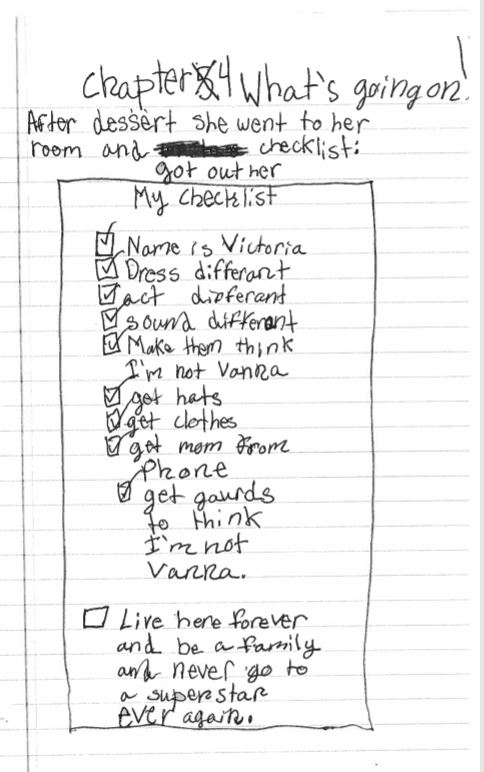 Chapter 4 What's going on!
After dessert she went to her
room and checklist:
got out her
My Checklist
Name is Victoria
Dress differant
act dipferant
sound different
Make them think
I'm not Vanna
get hats
get clothes
get mom from
Phone
get gaurds
to think
I'm not
Vanna.
Live here forever
and be a family
and never go to
a superstar
ever again.